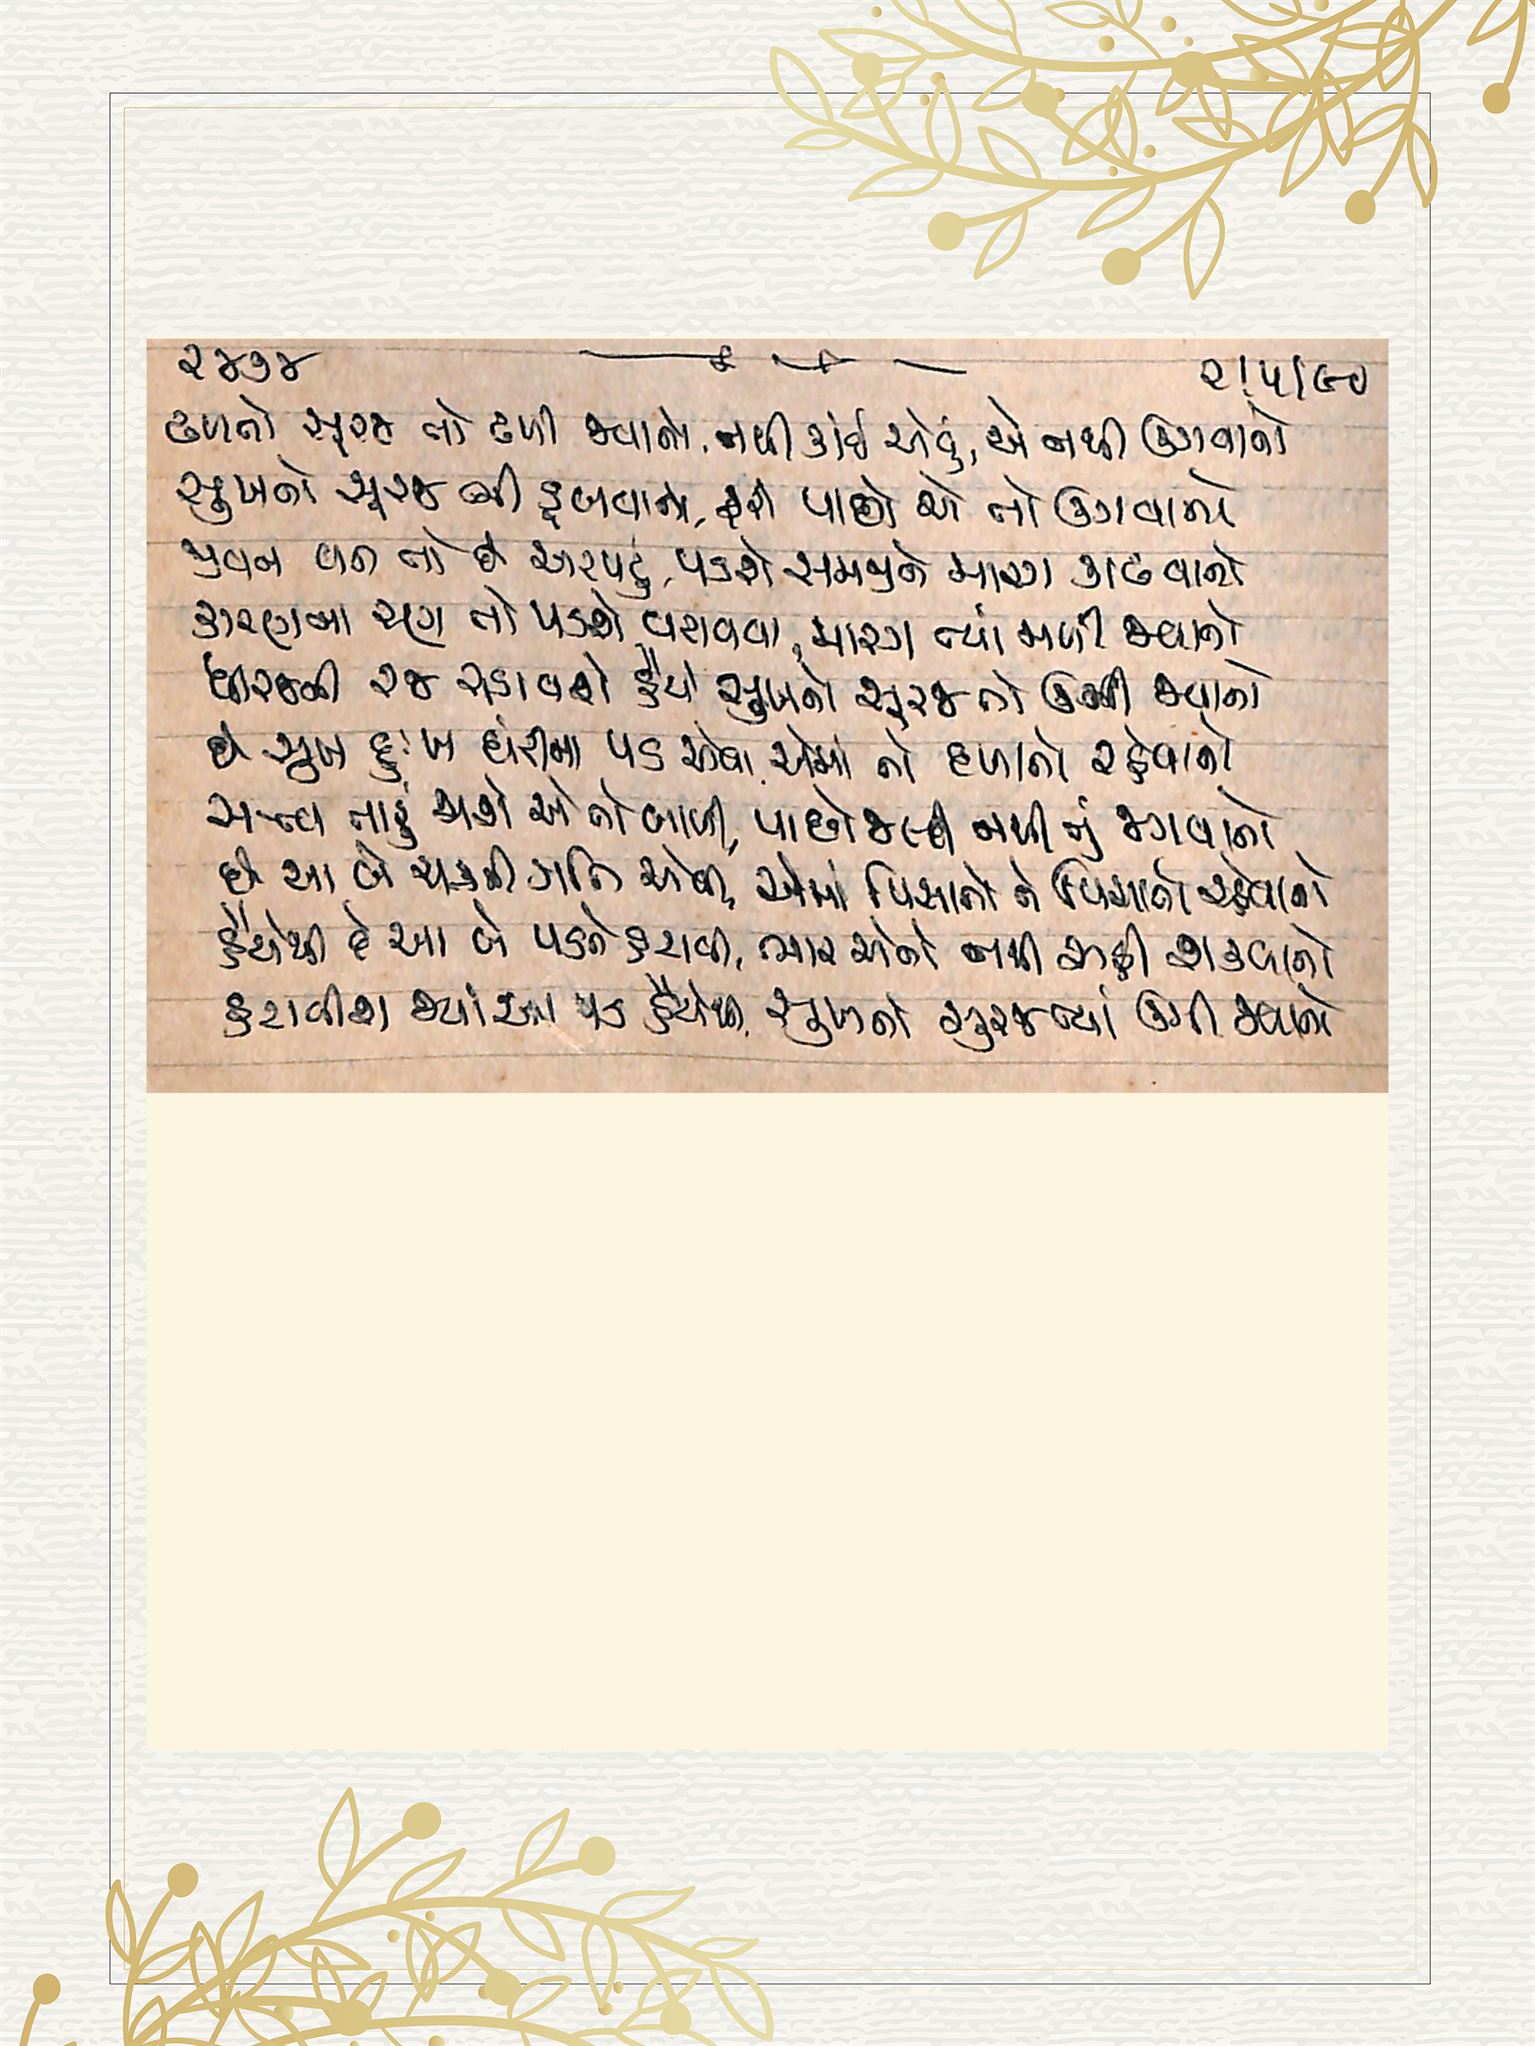 ૨૪૭૪ ૨/૫/૯૦
ઢળતો સૂરજ તો ઢળી જવાનો, નથી કાંઈ એવું, એ નથી ઊગવાનો
સુખનો સૂરજ બી ડૂબવાનો, ફરી પાછો એ તો ઊગવાનો
જીવન વન તો છે અટપટું, પડશે સમજીને મારગ કાઢવાનો
કારણના ચણ તો પડશે ચાવવા, મારગ ત્યાં મળી જવાનો
ધીરજની રજ ચડાવશે હૈયે સુખનો સૂરજ તો ઊગી જવાનો
છે સુખ દુઃખ ઘંટીના પડ એવા, એમાં તો દળાતો રહેવાનો
સત્ત્વ તારું જાશે એ તો બાળી, પાછો જલ્દી નથી તું જાગવાનો
છે આ બે ચક્રની ગતિ એવી, એમાં પિસાતો ને પિસાતો રહેવાનો
હૈયેથી દે આ બે પડને હટાવી, માર એનો નથી અડી શકવાનો
હટાવીશ જ્યાં આ પડ હૈયેથી, સુખનો સુરજ ત્યાં ઊગી જવાનો